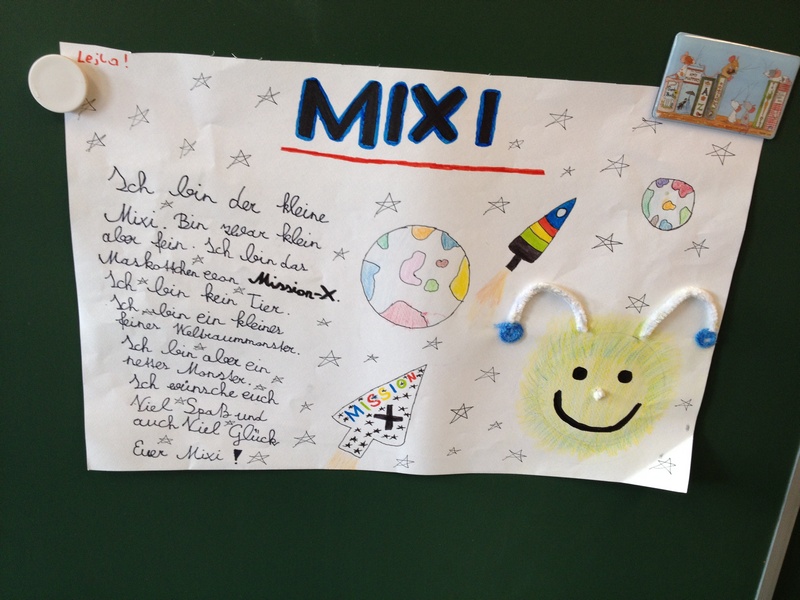 Lejla!
MIXI
Ich bin der kleine
Mixi. Bin zwar klein
aber fein. Ich bin das
Maskottchen von Mission-X.
Ich bin kein Tier.
Ich bin ein kleines
feines Weltraummonster.
Ich bin aber ein
nettes Monster.
Ich wünsche euch
Viel Spaß und
auch Viel Glück
Euer Mixi!
MISSION
X